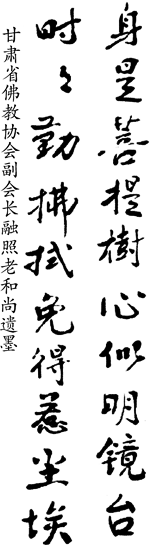 身是菩提樹心似明镜台
时々勤拂拭免得惹尘埃
甘肃省佛教协会副会长融照老和尚遗墨